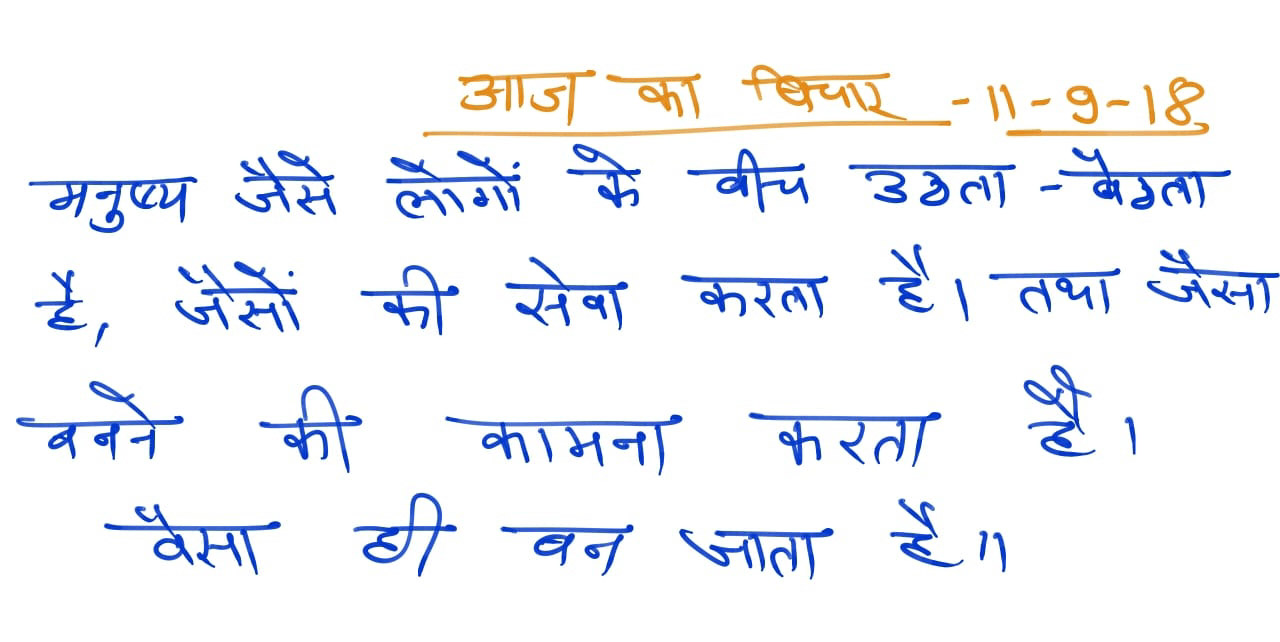 आज का विचार - 11-9-18
मनुष्य जैसे लोगों के बीच उठता - बैठता
है, जैसों की सेवा करता है। तथा जैसा
बनने की कामना करता है।
वैसा ही बन जाता है॥